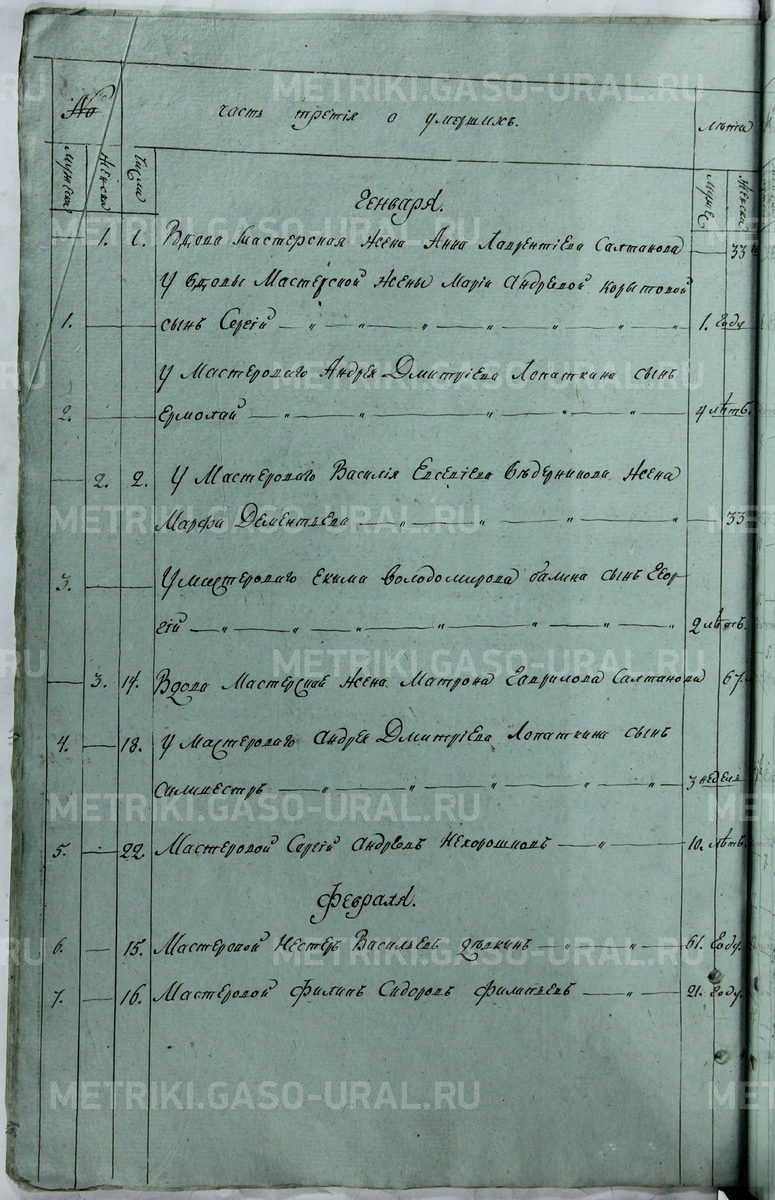 №
часть третія о умершихъ.
лѣта
мужеска
женска
числа
мужес
женска
Генваря.
1. 1. Вдова мастерская жена Анна Лаврентіева Салтанова 33
У вдовы Мастерской жены Маріи Андреевой Корытовой
1. сынъ Сергій — „ — „ — „ — „ — „ — „ 1. году
У Мастероваго Андрея Дмитріева Лопаткина сынъ
2. Ермолай — „ — „ — „ — „ — „ 4 лѣтъ.
2. 2. У Мастероваго Василія Евсевіева Бѣдерникова жена
Марфа Дементьева — „ — „ — „ — „ 33
3. У мастероваго Екима Володомирова балина сынъ Геор-
гій — „ — „ — „ — „ — „ — „ — „ 2 лѣтъ.
3. 14. Вдова Мастерская жена Матрона Гаврилова Салтанова 67
4. 18. У мастероваго Андрея Дмитріева Лопаткина сынъ
Силивестръ — „ — „ — „ — „ — „ 3 недел
5. 22. Мастеровой Сергій Андреевъ Нехорошковъ — „ — 10. лѣтъ.
Февраля.
6. 15. Мастерской Нестеръ Васильевъ — „ — „ — 61. году.
7. 16. Мастеровой Филипъ Сидоровъ Филипьевъ — „ — 21. году.
METRIKI.GASO-URAL.RU